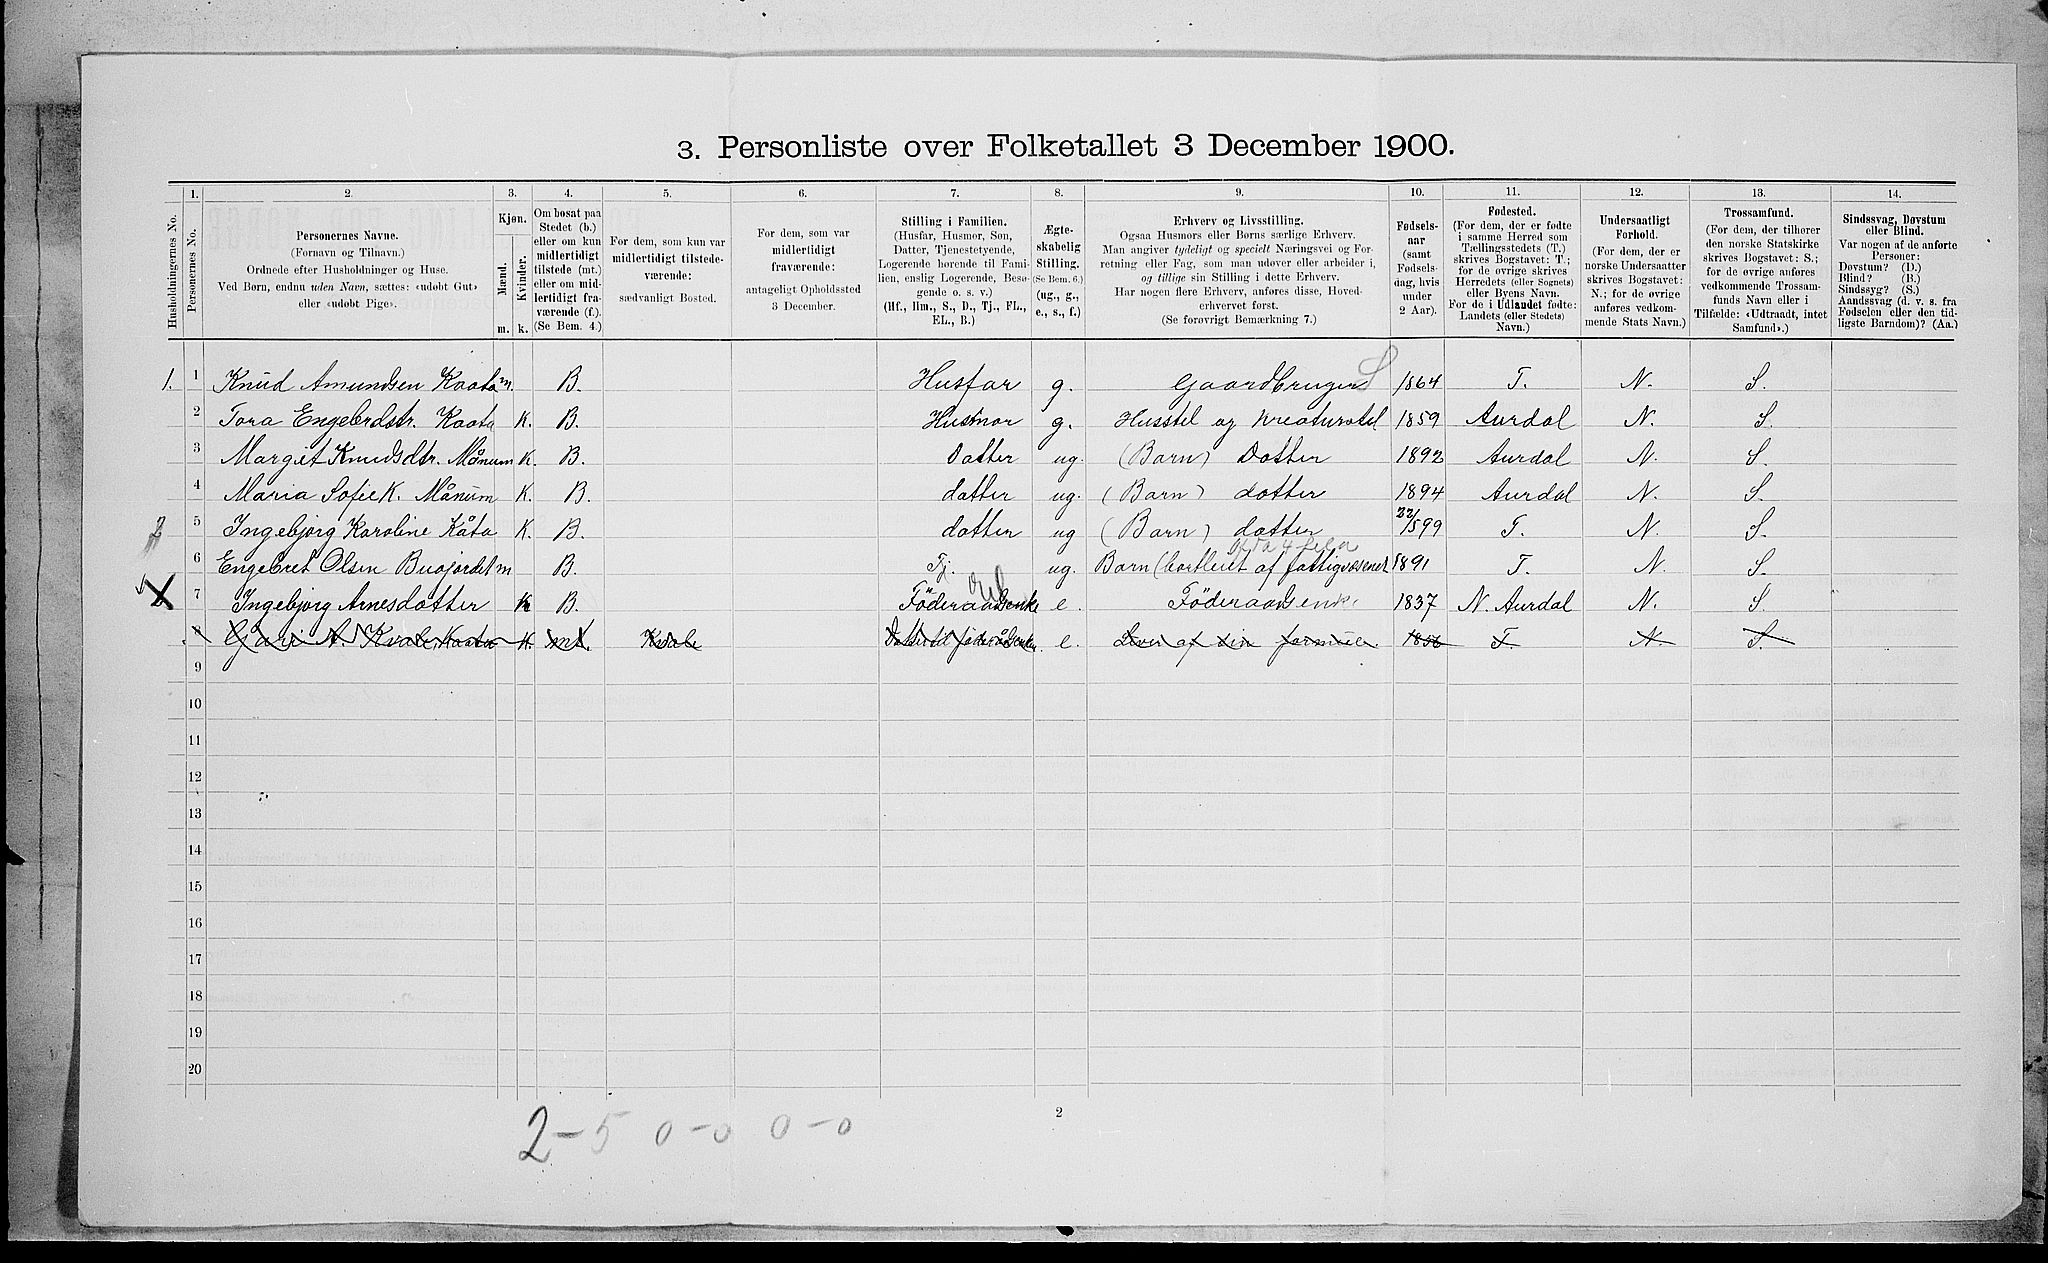 3. Personliste over Folketallet 3 December 1900.
1. 2. 3. 4. 5. 6. 7. 8. 9. 10. 11. 12. 13. 14.
Husholdningernes No.
Personernes No.
Personernes Navne.
(Fornavn og Tilnavn.)
Ordnede efter Husholdninger og Huse.
Ved Børn, endnu uden Navn, sættes: «udøbt Gut»
eller «udøbt Pige».
Kjøn.
Mænd.
Kvinder.
m. k.
Om bosat paa
Stedet (b.)
eller om kun
midlertidigt
tilstede (mt.)
eller om mid-
lertidigt fra-
værende (f.).
(Se Bem. 4.)
For dem, som kun var
midlertidigt tilstede-
værende:
sædvanligt Bosted.
For dem, som var
midlertidigt
fraværende:
antageligt Opholdssted
3 December.
Stilling i Familien.
(Husfar, Husmor, Søn,
Datter, Tjenestetyende,
Logerende hørende til Fami-
lien, enslig Logerende, Besø-
gende o. s. v.)
(Hf., Hm., S., D., Tj., FL.,
EL., B.)
Ægte-
skabelig
Stilling.
(Se Bem. 6.)
(ug., g.,
e., s., f.)
Erhverv og Livsstilling.
Ogsaa Husmors eller Børns særlige Erhverv.
Man angiver tydeligt og specielt Næringsvei og For-
retning eller Fag, som man udøver eller arbeider i,
og tillige sin Stilling i dette Erhverv.
Har nogen flere Erhverv, anføres disse, Hoved-
erhvervet først.
(Se forøvrigt Bemærkning 7.)
Fødsels-
aar
(samt
Fødsels-
dag, hvis
under
2 Aar).
Fødested.
(For dem, der er fødte
i samme Herred som
Tællingsstedets (T.)
skrives Bogstavet: T.;
for de øvrige skrives
Herredets (eller Sognets)
eller Byens Navn.
For de i Udlandet fødte:
Landets (eller Stedets)
Navn.)
Undersaatligt
Forhold.
(For dem, der er
norske Undersaatter
skrives Bogstavet:
N.; for de øvrige
anføres vedkom-
mende Stats Navn.)
Trossamfund.
(For dem, der tilhører
den norske Statskirke
skrives Bogstavet: S.;
for de øvrige anføres
vedkommende Trossam-
funds Navn eller i
Tilfælde: «Udtraadt, intet
Samfund».)
Sindssvag, Døvstum
eller Blind.
Var nogen af de anførte
Personer:
Døvstum? (D.)
Blind? (B.)
Sindssyg? (S.)
Aandssvag (d. v. s. fra
Fødselen eller den tid-
ligste Barndom)? (Aa.)
1. 1 Knud Amundsen Kaata m. B. Husfar g. Gaardbruger S 1864 T. N. S.
2 Tora Engebrdstr. Kaata K. B. Husmor g. Husstel og Kreaturstel 1859 Aurdal N. S.
3 Margit Knudsdtr. Månum K. B. Datter ug. (Barn) Datter 1892 Aurdal N. S.
4 Maria Sofie K. Månum K. B. datter ug. (Barn) datter 1894 Aurdal N. S.
2 5 Ingebjørg Karoline Kåta K. B. datter ug (Barn) datter 22/5 99 T. N. S.
6 Engebret Olsen Buajordet m B. Tj. ug. Barn (bortleiet af fattigvæsenet 1891 T. N. S.
7 Ingebjørg Arnesdatter K B. Føderaadsenke e. Føderaadsenke 1837 N. Aurdal N. S.
8 Gjari A. Kvale, Kaata K. mt. Kvale e. Lever af sin formue. 1856 T. N. S.
9
10
11
12
13
14
15
16
17
18
19
20
2
2-5 0-0 0-0